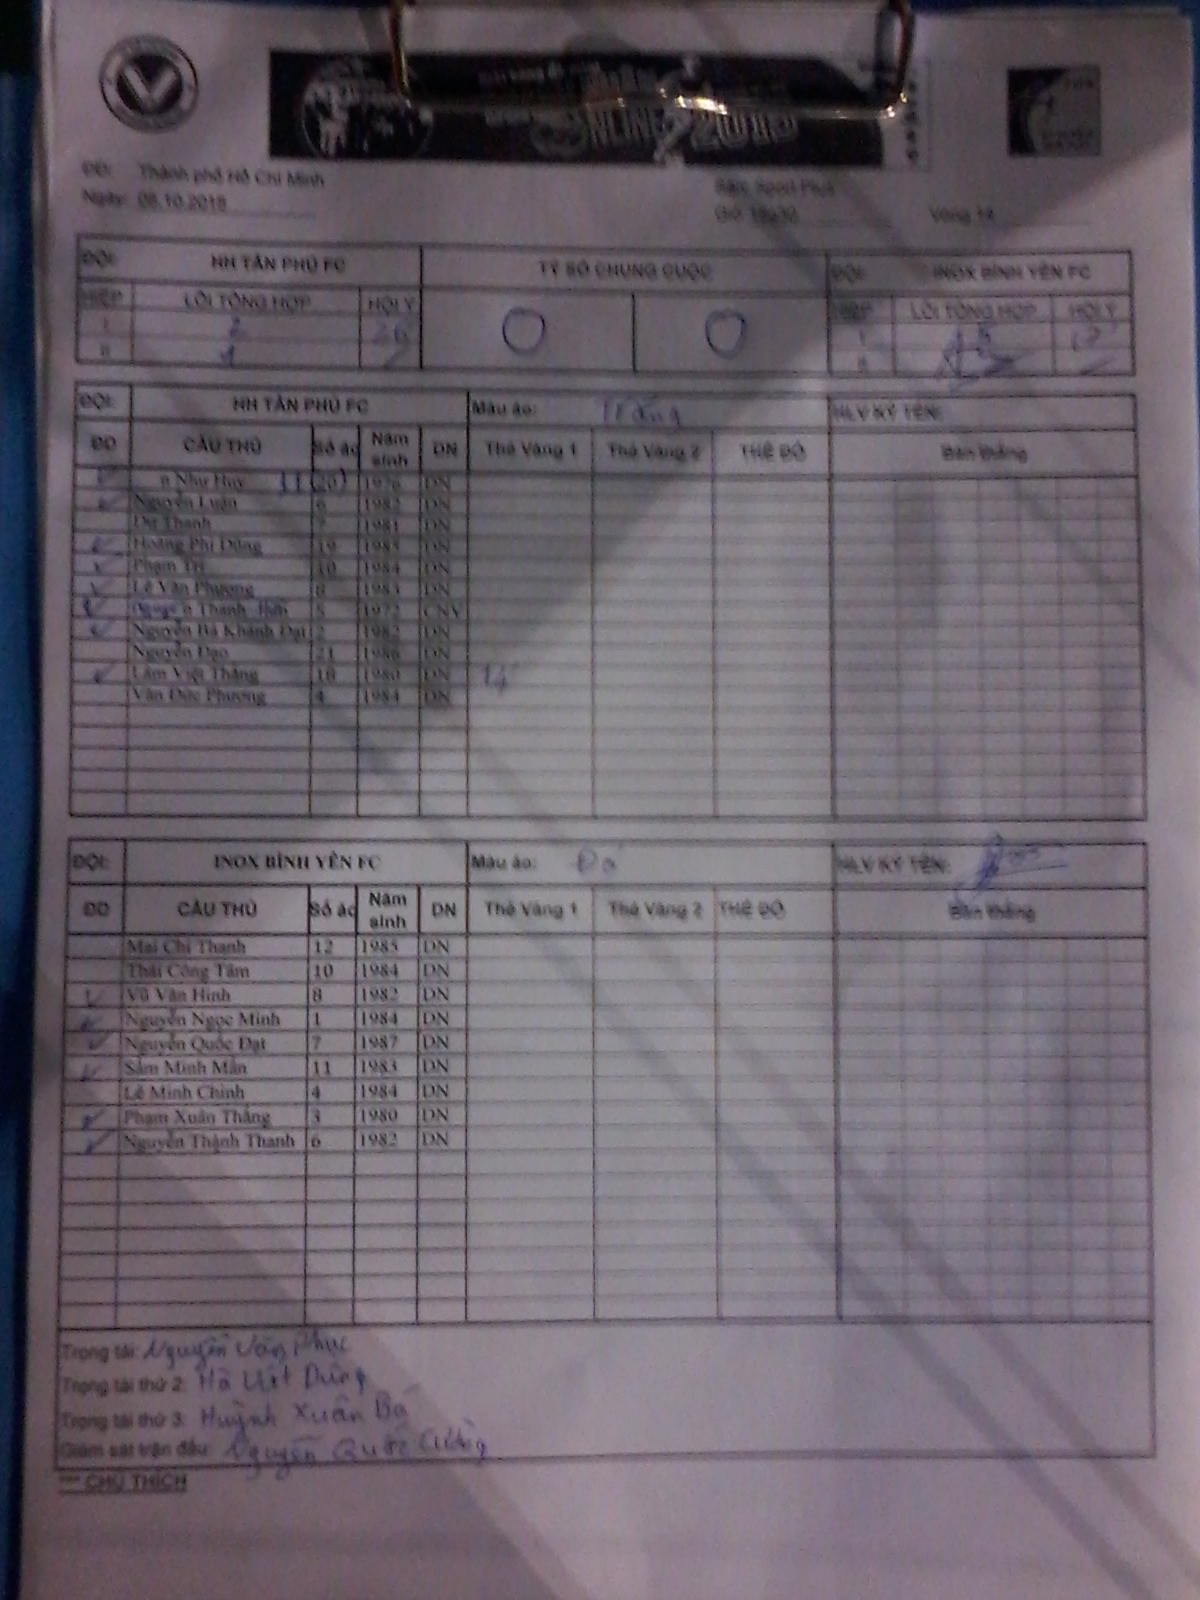 ĐĐ: Thành phố Hồ Chí Minh
Sân: Sport Plus
Ngày: 08.10.2015 Giờ: 18g30 Vòng 14
ĐỘI: HH TÂN PHÚ FC TỶ SỐ CHUNG CUỘC ĐỘI: INOX BÌNH YÊN FC
HIỆP LỖI TỔNG HỢP HỘI Ý 0 0 HIỆP LỖI TỔNG HỢP HỘI Ý
I 2 26' I 5
II 1 II
ĐỘI: HH TÂN PHÚ FC Màu áo: Trắng HLV KÝ TÊN:
ĐD CẦU THỦ Số áo Năm sinh DN Thẻ Vàng 1 Thẻ Vàng 2 THẺ ĐỎ Bàn thắng
n Như Huy 11 (20) 1976 DN
Nguyễn Luận 6 1982 DN
Dư Thanh 7 1981 DN
Hoàng Phi Dũng 19 1985 DN
Phạm Trí 10 1984 DN
Lê Văn Phượng 8 1983 DN
Nguyễn Thanh 5 1972 CNV
Nguyễn Bá Khánh Đạt 2 1982 DN
Nguyễn Đạo 21 1986 DN
Lâm Việt Thắng 18 1980 DN 14'
Văn Đức Phương 4 1984 DN
ĐỘI: INOX BÌNH YÊN FC Màu áo: Đỏ HLV KÝ TÊN:
ĐD CẦU THỦ Số áo Năm sinh DN Thẻ Vàng 1 Thẻ Vàng 2 THẺ ĐỎ Bàn thắng
Mai Chí Thanh 12 1985 DN
Thái Công Tâm 10 1984 DN
Vũ Văn Hinh 8 1982 DN
Nguyễn Ngọc Minh 1 1984 DN
Nguyễn Quốc Đạt 7 1987 DN
Sầm Minh Mẫn 11 1983 DN
Lê Minh Chinh 4 1984 DN
Phạm Xuân Thắng 3 1980 DN
Nguyễn Thành Thanh 6 1982 DN
Trọng tài: Nguyễn Văn Phúc
Trọng tài thứ 2: Hà Việt Dũng
Trọng tài thứ 3: Huỳnh Xuân Bá
Giám sát trận đấu: Nguyễn Quốc Cường
*** CHÚ THÍCH